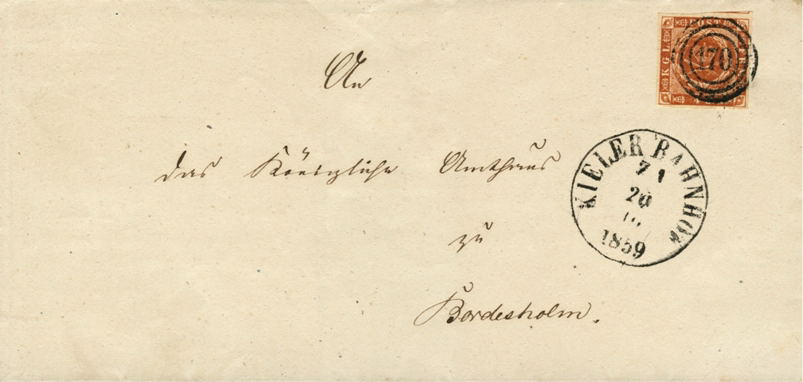 KGL POST
170
An
KIELER BAHNHOF
7 1
20
1859
das Königliche Amthaus
zu
Bordesholm.